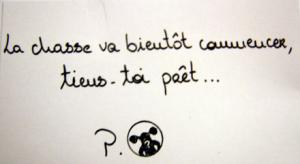 La chasse va bientôt commencer,
tiens-toi paêt...
P.